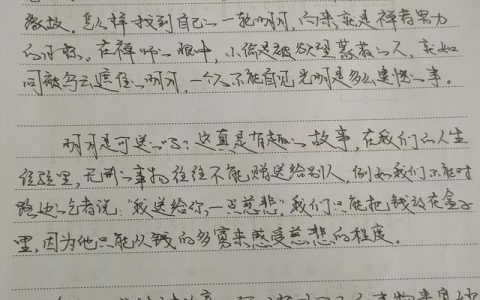 缘故。怎么样找到自己心一轮明月，向来就是禅者努力
的目标。在禅师的眼中，小偷是被欲望蒙蔽的人，就如
同被乌云遮住的明月，一个人不能自见光明是多么遗憾的事。
明月是可送的吗？这真是有趣的故事，在我们的人生
经验里，无形的事物往往不能赠送给别人，例如我们不能对
路边的乞者说：“我送给你一点慈悲”，我们只能把钱放在盒子
里，因为他只能以钱的多寡来感受慈悲的程度。